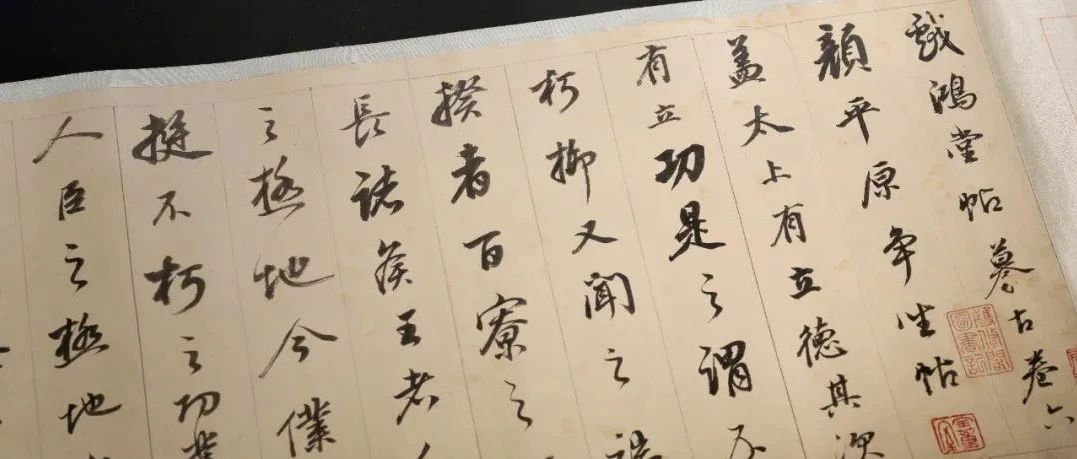 戲鴻堂帖摹古卷六
顏平原爭坐帖
蓋太上有立德其次
有立功是之謂不
朽抑又聞之
揆者百寮之
長諸侯王者人
之極地今僕
挺不朽之功業
人臣之極地